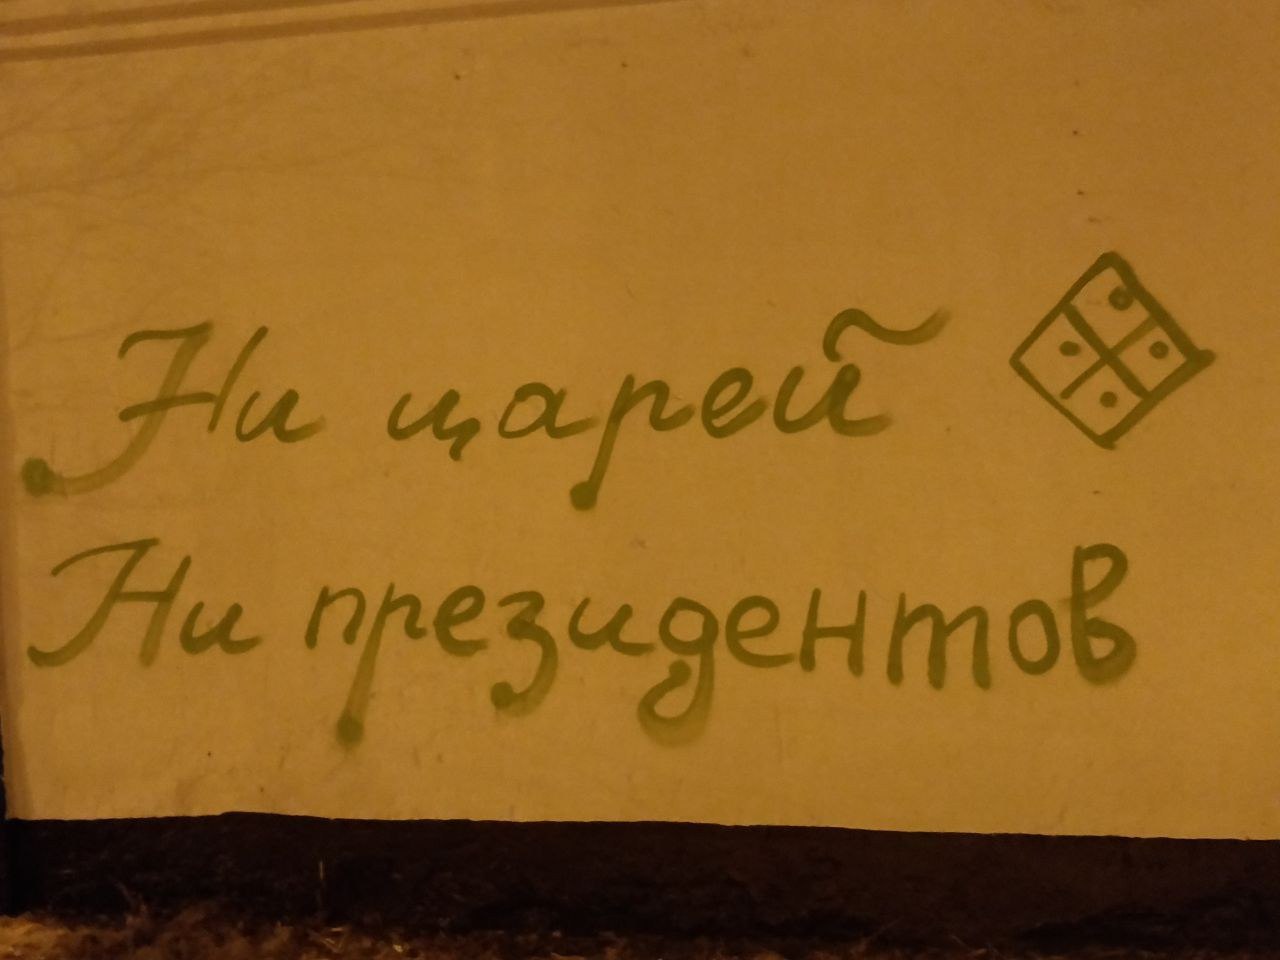 Ни царей
Ни президентов